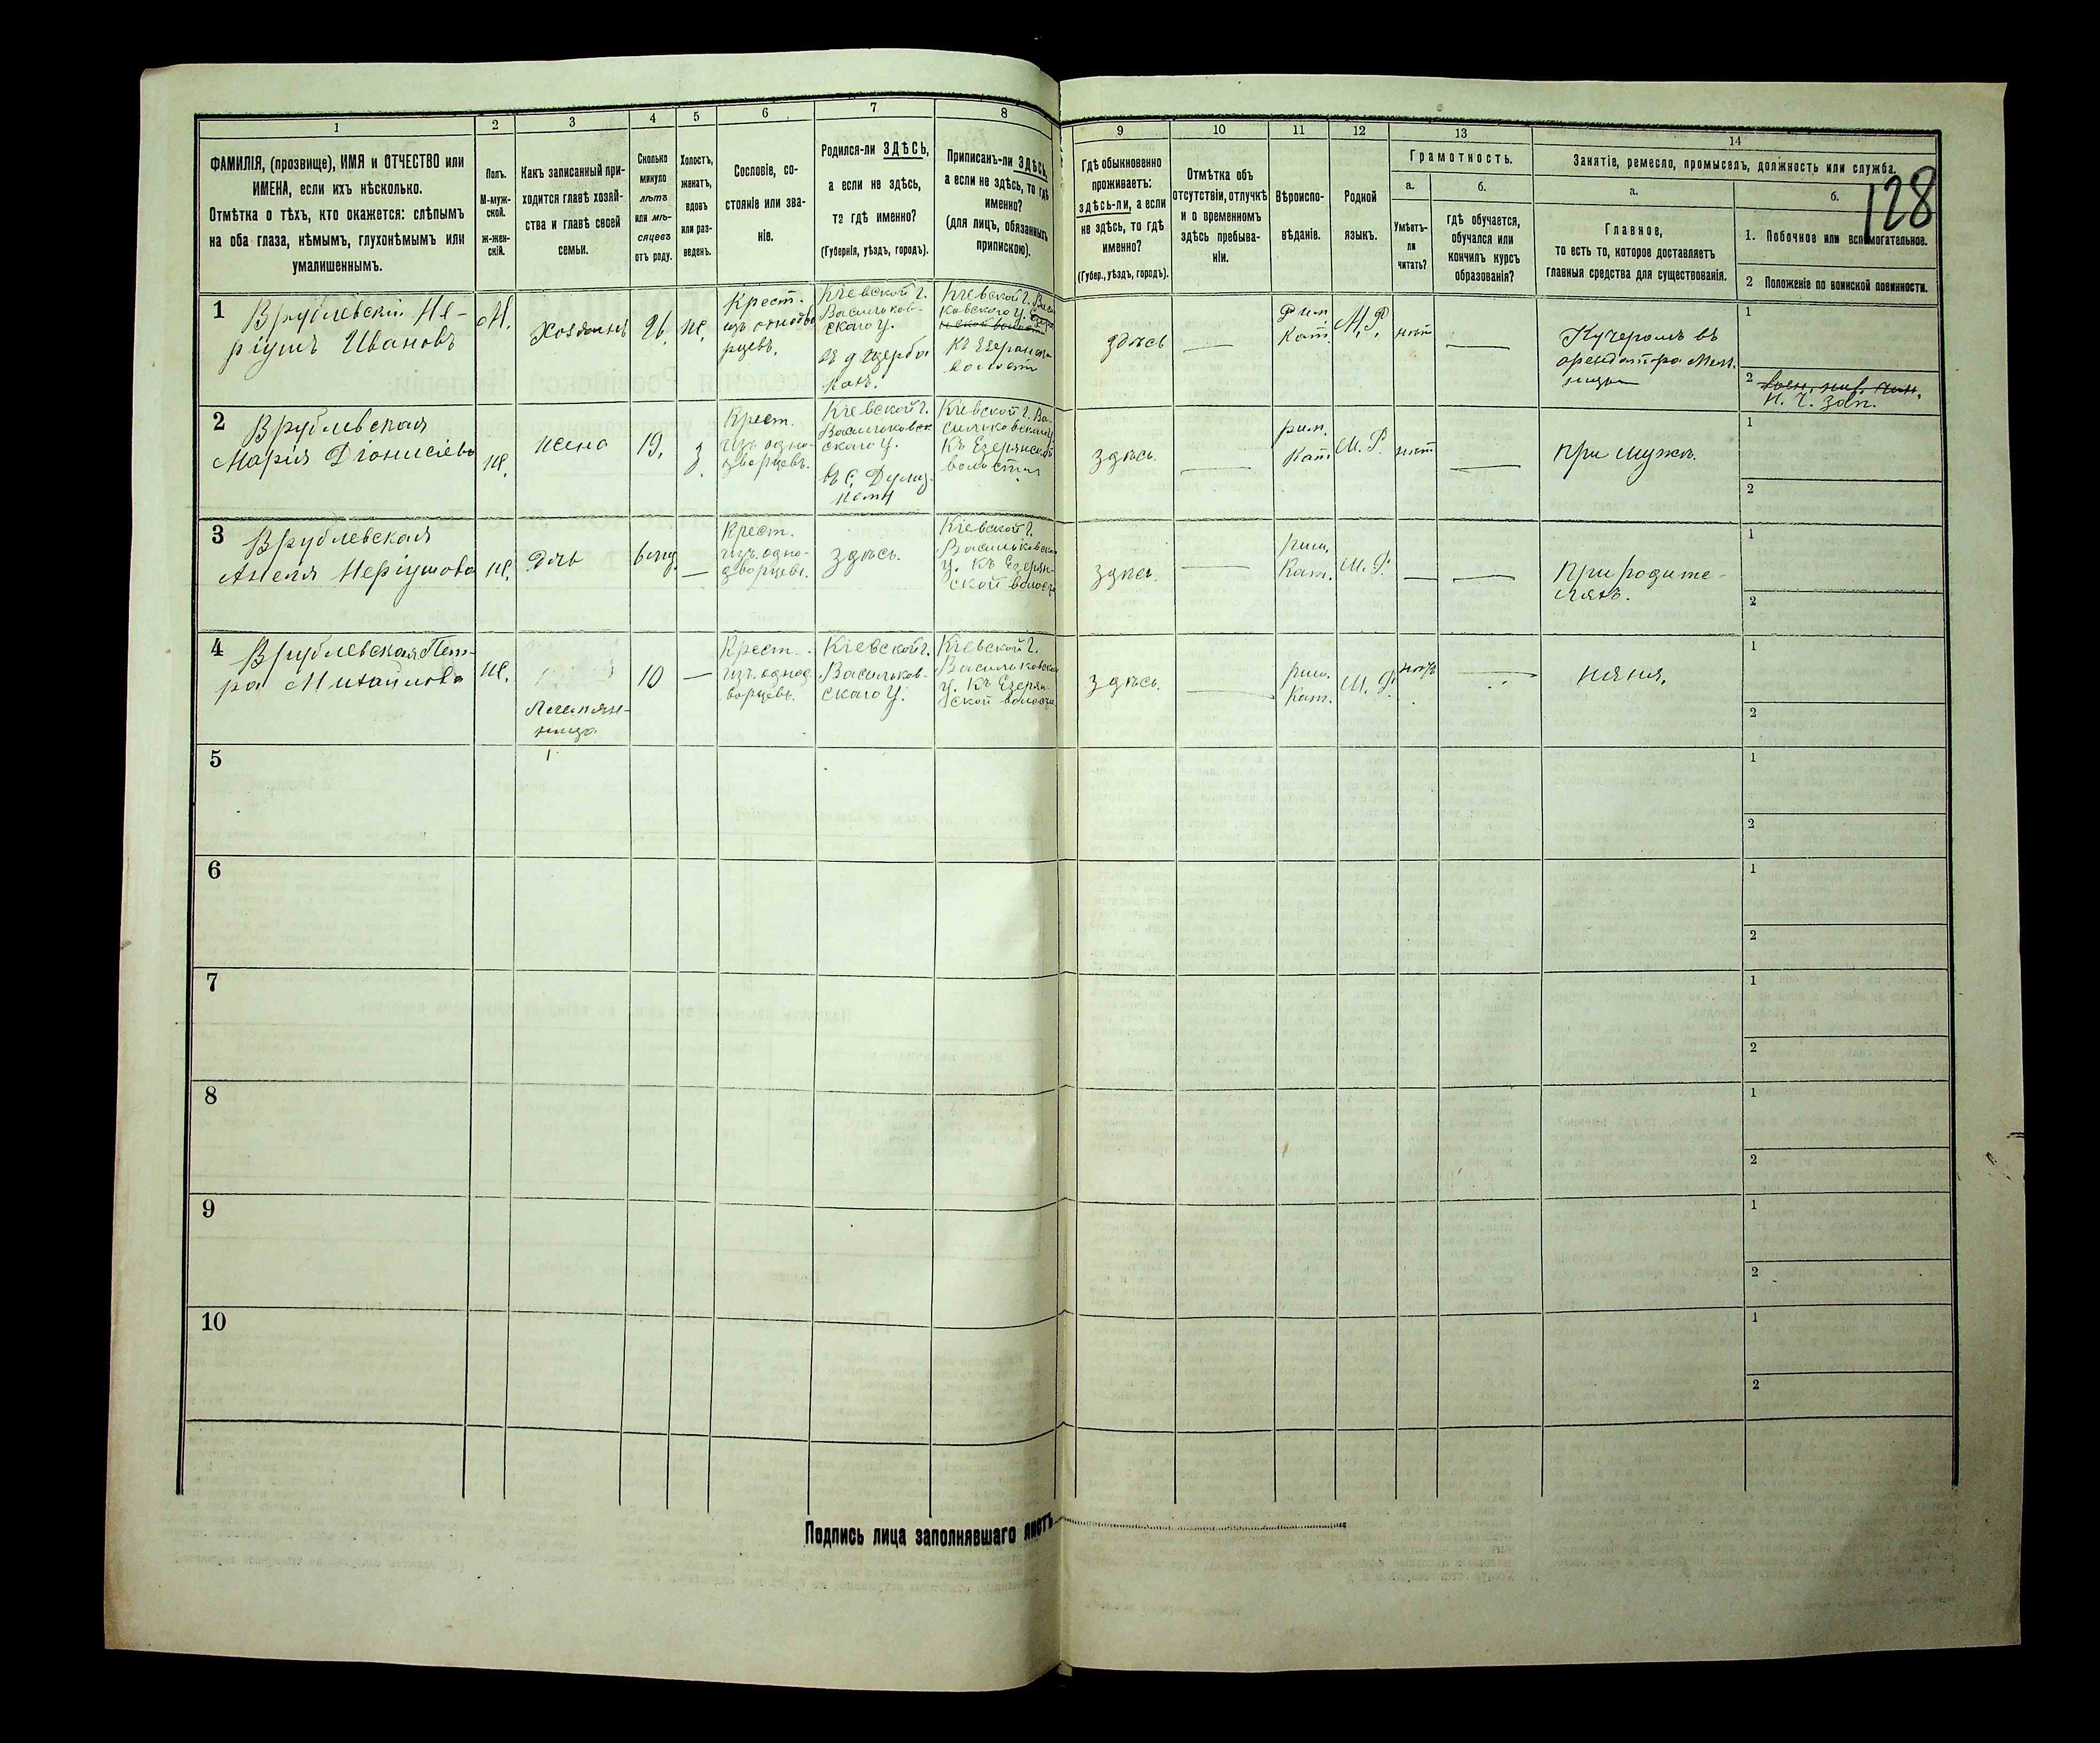 128
1
2
3
4
5
6
7
8
ФАМИЛІЯ, (прозвище), ИМЯ и ОТЧЕСТВО или
ИМЕНА, если ихъ нѣсколько.
Отмѣтка о тѣхъ, кто окажется: слѣпымъ
на оба глаза, нѣмымъ, глухонѣмымъ или
умалишеннымъ.
Полъ.
М-муж-
ской.
ж-жен-
скій.
Какъ записанный при-
ходится главѣ хозяй-
ства и главѣ своей
семьи.
Сколько
минуло
лѣтъ
или мѣ-
сяцевъ
отъ роду.
Холостъ,
женатъ,
вдовъ
или раз-
веденъ.
Сословіе, со-
стояніе или зва-
ніе.
Родился-ли ЗДѢСЬ,
а если не здѣсь,
то гдѣ именно?
(Губернія, уѣздъ, городъ).
Приписанъ-ли ЗДѢСЬ,
а если не здѣсь, то гдѣ
именно?
(для лицъ, обязанныхъ
припискою).
9
10
11
12
13
14
Гдѣ обыкновенно
проживаетъ:
здѣсь-ли, а если
не здѣсь, то гдѣ
именно?
(Губер., уѣздъ, городъ).
Отмѣтка объ
отсутствіи, отлучкѣ
и о временномъ
здѣсь пребыва-
ніи.
Вѣроиспо-
вѣданіе.
Родной
языкъ.
Грамотность.
а.
б.
Умѣетъ-
ли
читать?
гдѣ обучается,
обучался или
кончилъ курсъ
образованія?
Занятіе, ремесло, промыселъ, должность или служба.
а.
б.
Главное,
то есть то, которое доставляетъ
главныя средства для существованія.
1. Побочное или вспомогательное.
2 Положеніе по воинской повинности.
1
Врублевскій Не-
ріушъ Ивановъ
М.
Хозяинъ
26.
ж.
Крест.
изъ однодво
рцевъ.
Кіевской г.
Васильков-
скаго у.
въ д Щерба
Кіевской г. Василь
ковскаго у.
къ Езерянской
волости
здѣсь
—
Рим.
Кат.
М. Р.
нѣт
—
Кучеромъ въ
орендатора
1
2
Н. Ч. Зап.
2
Врублевская
Марія Діонисіева
ж.
жена
19,
з.
Крест.
изъ одно-
дворцевъ.
Кіевской г.
Васильковск
скаго у.
въ с,
Кіевской г. Ва-
сильковскаго у.
къ Езерянской
волости
здѣсь.
—
рим.
Кат
М. Р.
нѣт
—
при мужѣ.
1
2
3
Врублевская
Анеля Неріушова
ж.
Дочь
6 мц.
—
Крест.
изъ одно-
дворцевъ.
здѣсь.
Кіевской г.
Васильковскаго
у. къ Езерян-
ской волости
здѣсь.
—
рим.
Кат.
М. Р.
—
—
При родите-
ляхъ.
1
2
4
Врублевская Пет-
ра Михайлова
ж.
Племян-
ница
10
—
Крест.
изъ однод
ворцевъ.
Кіевской г.
Васильков-
скаго у.
Кіевской г.
Васильковскаго
у. къ Езерян
ской волости
здѣсь.
—
рим.
Кат.
М. Р.
нѣт
—
няня,
1
2
5
1
2
6
1
2
7
1
2
8
1
2
9
1
2
10
1
2
Подпись лица заполнявшаго листъ